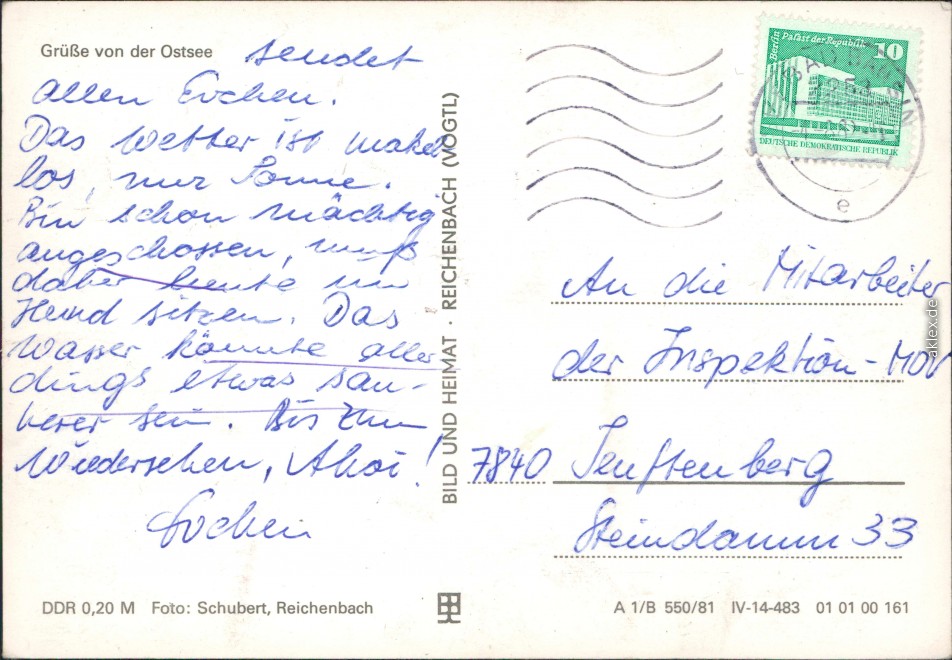 Grüße von der Ostsee sendet
allen Evchen.
Das Wetter ist makel
los, nur Sonne.
Bin schon mächtig
angeschossen, muß
daher heute im
Hemd sitzen. Das
Wasser könnte aller
dings etwas sau-
berer sein. Bis zum
Wiedersehen, Ahoi!
Evchen
DDR 0,20 M Foto: Schubert, Reichenbach
BILD UND HEIMAT · REICHENBACH (VOGTL)
Berlin Palast der Republik 10
DEUTSCHE DEMOKRATISCHE REPUBLIK
e
An die Mitarbeiter
der Inspektion-
7840 Senftenberg
Steindamm 33
A 1/B 550/81 IV-14-483 01 01 00 161
aklex.de